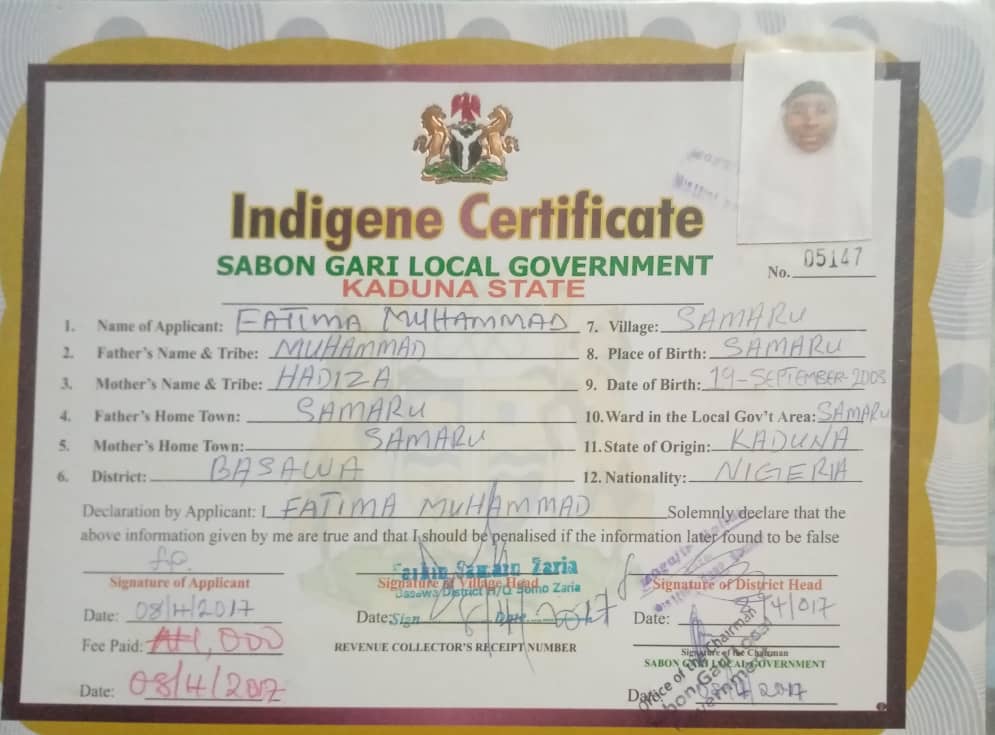 Indigene Certificate
SABON GARI LOCAL GOVERNMENT
KADUNA STATE
No. 05147
1. Name of Applicant: FATIMA MUHAMMAD 7. Village: SAMARU
2. Father's Name & Tribe: MUHAMMAD 8. Place of Birth: SAMARU
3. Mother's Name & Tribe: HADIZA 9. Date of Birth: 19-SEPTEMBER-2003
4. Father's Home Town: SAMARU 10. Ward in the Local Gov't Area: SAMARU
5. Mother's Home Town: SAMARU 11. State of Origin: KADUNA
6. District: BASAWA 12. Nationality: NIGERIA
Declaration by Applicant: I FATIMA MUHAMMAD Solemnly declare that the
above information given by me are true and that I should be penalised if the information later found to be false
Signature of Applicant Signature of Village Head Signature of District Head
Basawa District H/Q Somo Zaria
Date: 08/4/2017 Date: Sign Date 2017 Date: 8/4/017
Fee Paid: #1,000 REVENUE COLLECTOR'S RECEIPT NUMBER
Signature of the Chairman
SABON GARI LOCAL GOVERNMENT
Office of the Chairman
Date: 08/4/2017 Date: 08/4/2017